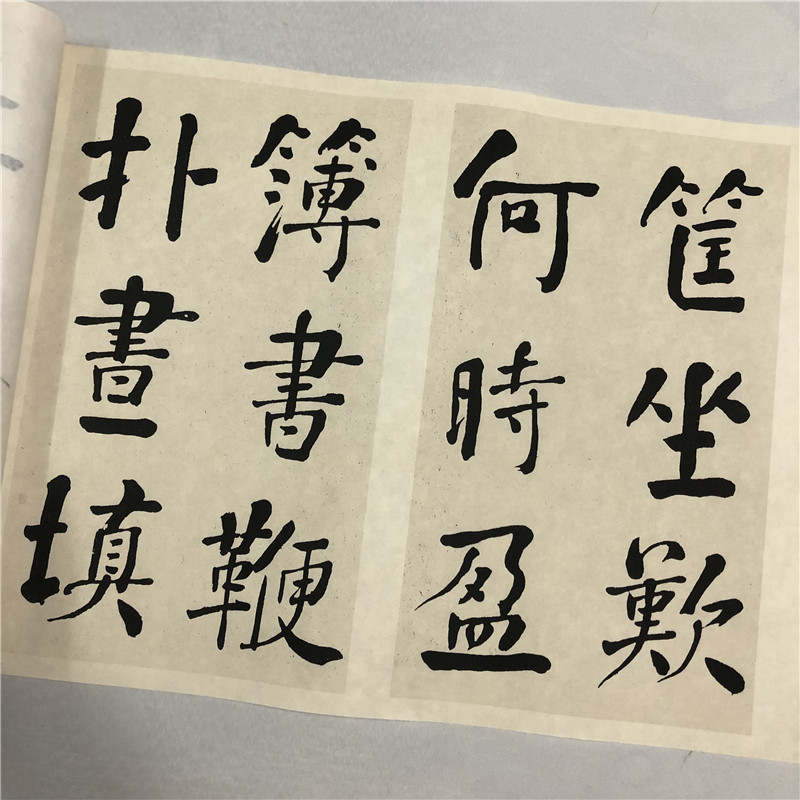 筐坐歎
何時盈
簿書鞭
扑晝填